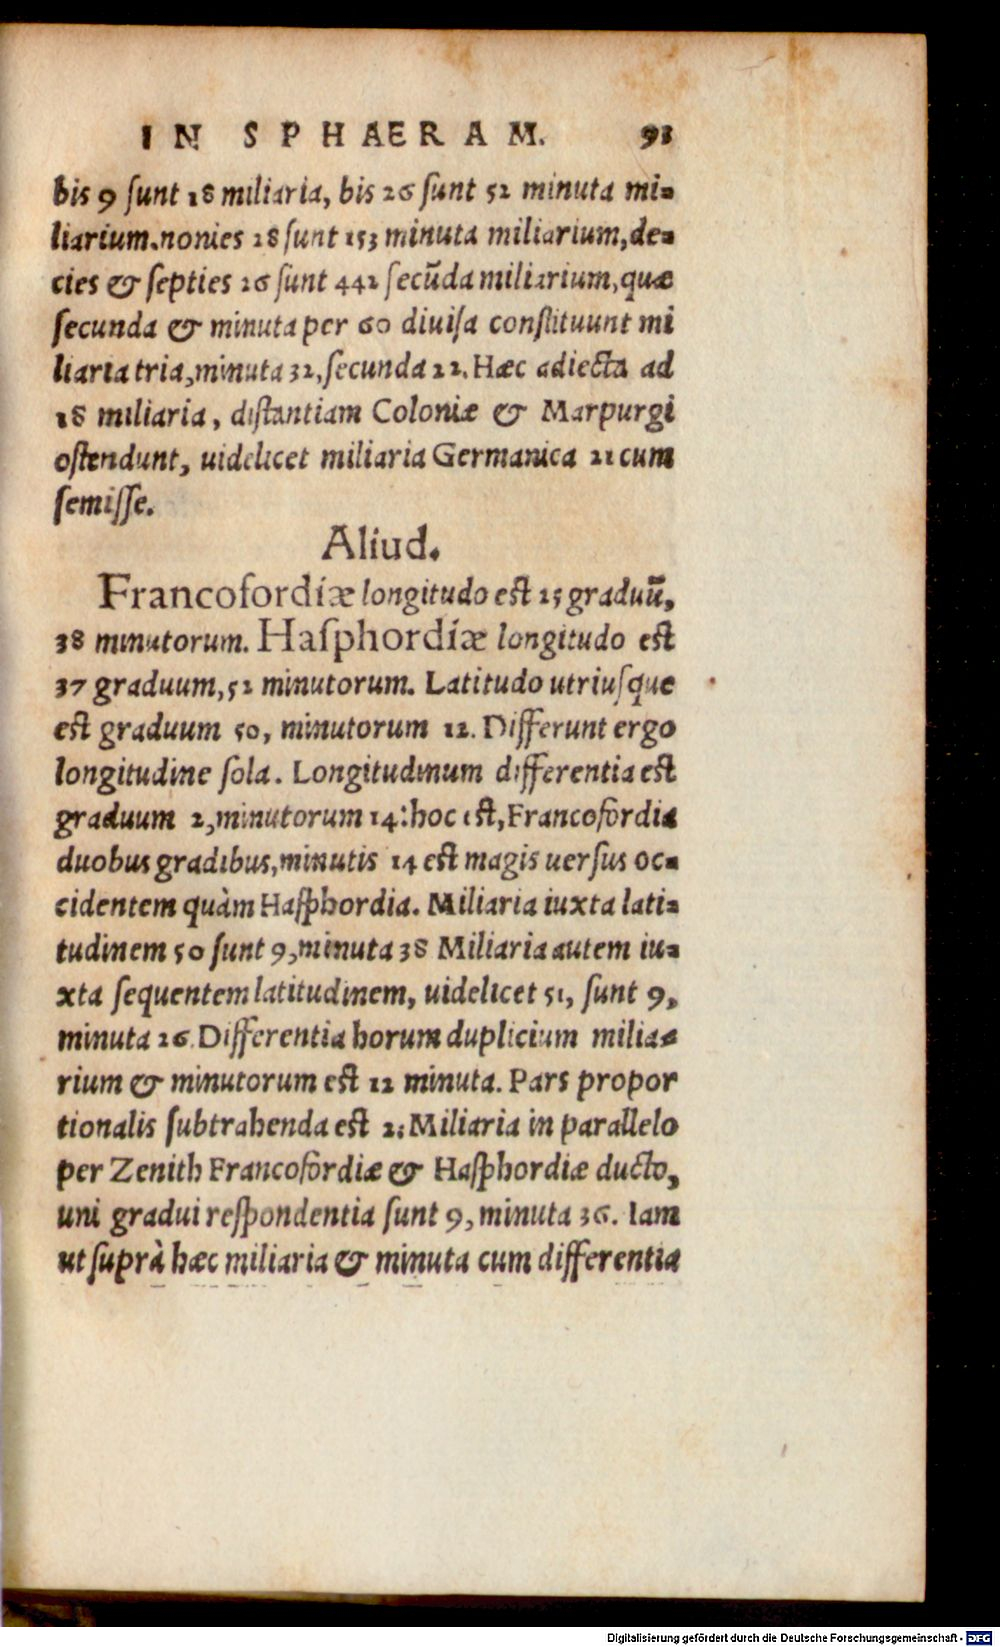 IN SPHAERAM. 93
bis 9 sunt 18 miliaria, bis 26 sunt 52 minuta mi-
liarium. nonies 28 sunt 153 minuta miliarium, de-
cies & septies 26 sunt 442 secūda miliarium, quæ
secunda & minuta per 60 diuisa constituunt mi
liaria tria, minuta 32, secunda 22. Hæc adiecta ad
18 miliaria, distantiam Coloniæ & Marpurgi
ostendunt, uidelicet miliaria Germanica 21 cum
semisse.
Aliud.
Francofordiæ longitudo est 25 graduū,
38 minutorum. Hasphordiæ longitudo est
37 graduum, 52 minutorum. Latitudo utriusque
est graduum 50, minutorum 12. Differunt ergo
longitudine sola. Longitudinum differentia est
graduum 2, minutorum 14: hoc est, Francofordia
duobus gradibus, minutis 14 est magis uersus oc-
cidentem quàm Hasphordia. Miliaria iuxta lati-
tudinem 50 sunt 9, minuta 38 Miliaria autem iu-
xta sequentem latitudinem, uidelicet 51, sunt 9,
minuta 26. Differentia horum duplicium milia-
rium & minutorum est 12 minuta. Pars propor
tionalis subtrahenda est 2: Miliaria in parallelo
per Zenith Francofordiæ & Hasphordiæ ducto,
uni gradui respondentia sunt 9, minuta 36. Iam
ut suprà hæc miliaria & minuta cum differentia
Digitalisierung gefördert durch die Deutsche Forschungsgemeinschaft - DFG